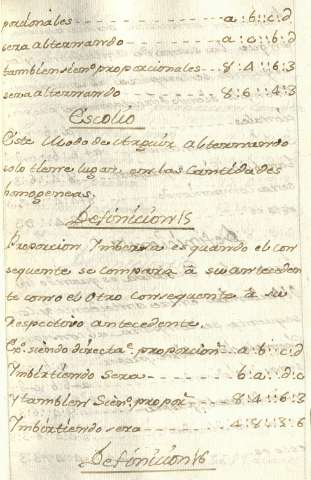 porcionales - - - - - - - - - - a.b::c.d
sera alternando - - - - - - - a.c::b.d
tambien sien.º proporcionales - - 8.4::6.3
sera alternando - - - - - - - 8.6::4.3
Escolio
Este Modo de Arguir Alternando
solo tiene lugar en las Cantidades
homogeneas.
Definicion 15
Proporcion Imbersa es quando el con
sequente se compara à su anteceden
te como el Otro Consequente à su
Respectivo antecedente.
siendo directa proporcion a.b::c.d
Imbirtiendo Sera - - - - - - b.a::d.c
y tambien Sien.º propor.l - - 8.4::6.3
Imbirtiendo sera - - - - - - 4.8::3.6
Definicion 16